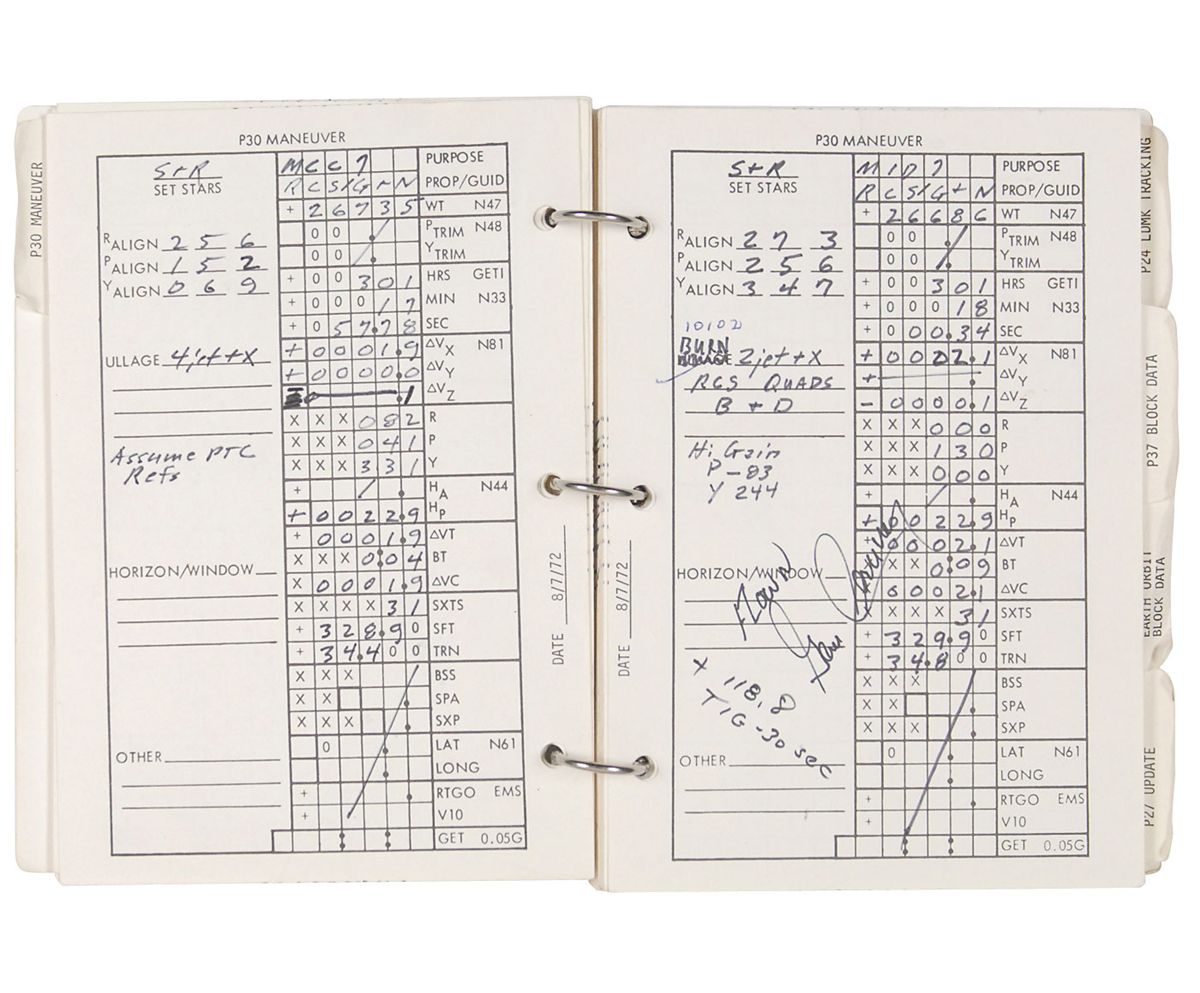 P30 MANEUVER
P30 MANEUVER
S+R
SET STARS
M C C 7 PURPOSE
R C S / G + N PROP/GUID
+ 2 6 7 3 5 WT N47
0 0 PTRIM N48
0 0 YTRIM
RALIGN 2 5 6
PALIGN 1 5 2
YALIGN 0 6 9
+ 0 0 3 0 1 HRS GETI
+ 0 0 0 1 7 MIN N33
+ 0 5 7.7 8 SEC
ULLAGE 4jet+X
+ 0 0 0 1.9 ΔVX N81
+ 0 0 0 0.0 ΔVY
.1 ΔVZ
X X X 0 8 2 R
X X X 0 4 1 P
X X X 3 3 1 Y
Assume PTC
Refs
+ HA N44
+ 0 0 2 2.9 HP
+ 0 0 0 1.9 ΔVT
X X X 0:0 4 BT
X 0 0 0 1.9 ΔVC
HORIZON/WINDOW
X X X X 3 1 SXTS
+ 3 2 8.9 0 SFT
+ 3 4.4 0 0 TRN
X X X BSS
X X SPA
X X X SXP
OTHER
0 LAT N61
LONG
+ RTGO EMS
+ V10
GET 0.05G
DATE 8/7/72
P30 MANEUVER
S+R
SET STARS
M I D 7 PURPOSE
R C S / G + N PROP/GUID
+ 2 6 6 8 6 WT N47
0 0 PTRIM N48
0 0 YTRIM
RALIGN 2 7 3
PALIGN 2 5 6
YALIGN 3 4 7
+ 0 0 3 0 1 HRS GETI
+ 0 0 0 1 8 MIN N33
+ 0 0 0.3 4 SEC
10102
BURN 2jet+X
RCS QUADS
B + D
+ 0 0 0 2.1 ΔVX N81
+ ΔVY
- 0 0 0 0.1 ΔVZ
X X X 0 0 0 R
X X X 1 3 0 P
X X X 0 0 0 Y
Hi Gain
P -83
Y 244
+ HA N44
+ 0 0 2 2.9 HP
0 0 0 2.1 ΔVT
X X 0:0 9 BT
0 0 0 2.1 ΔVC
HORIZON/WINDOW
Flown
Gene Cernan
X X X 3 1 SXTS
+ 3 2 9.9 0 SFT
+ 3 4.8 0 0 TRN
X 118.8
TIG -30 sec
X X X BSS
X X SPA
X X X SXP
OTHER
0 LAT N61
LONG
+ RTGO EMS
+ V10
GET 0.05G
DATE 8/7/72
P24 LDMK TRACKING
P37 BLOCK DATA
EARTH ORBIT
BLOCK DATA
P27 UPDATE